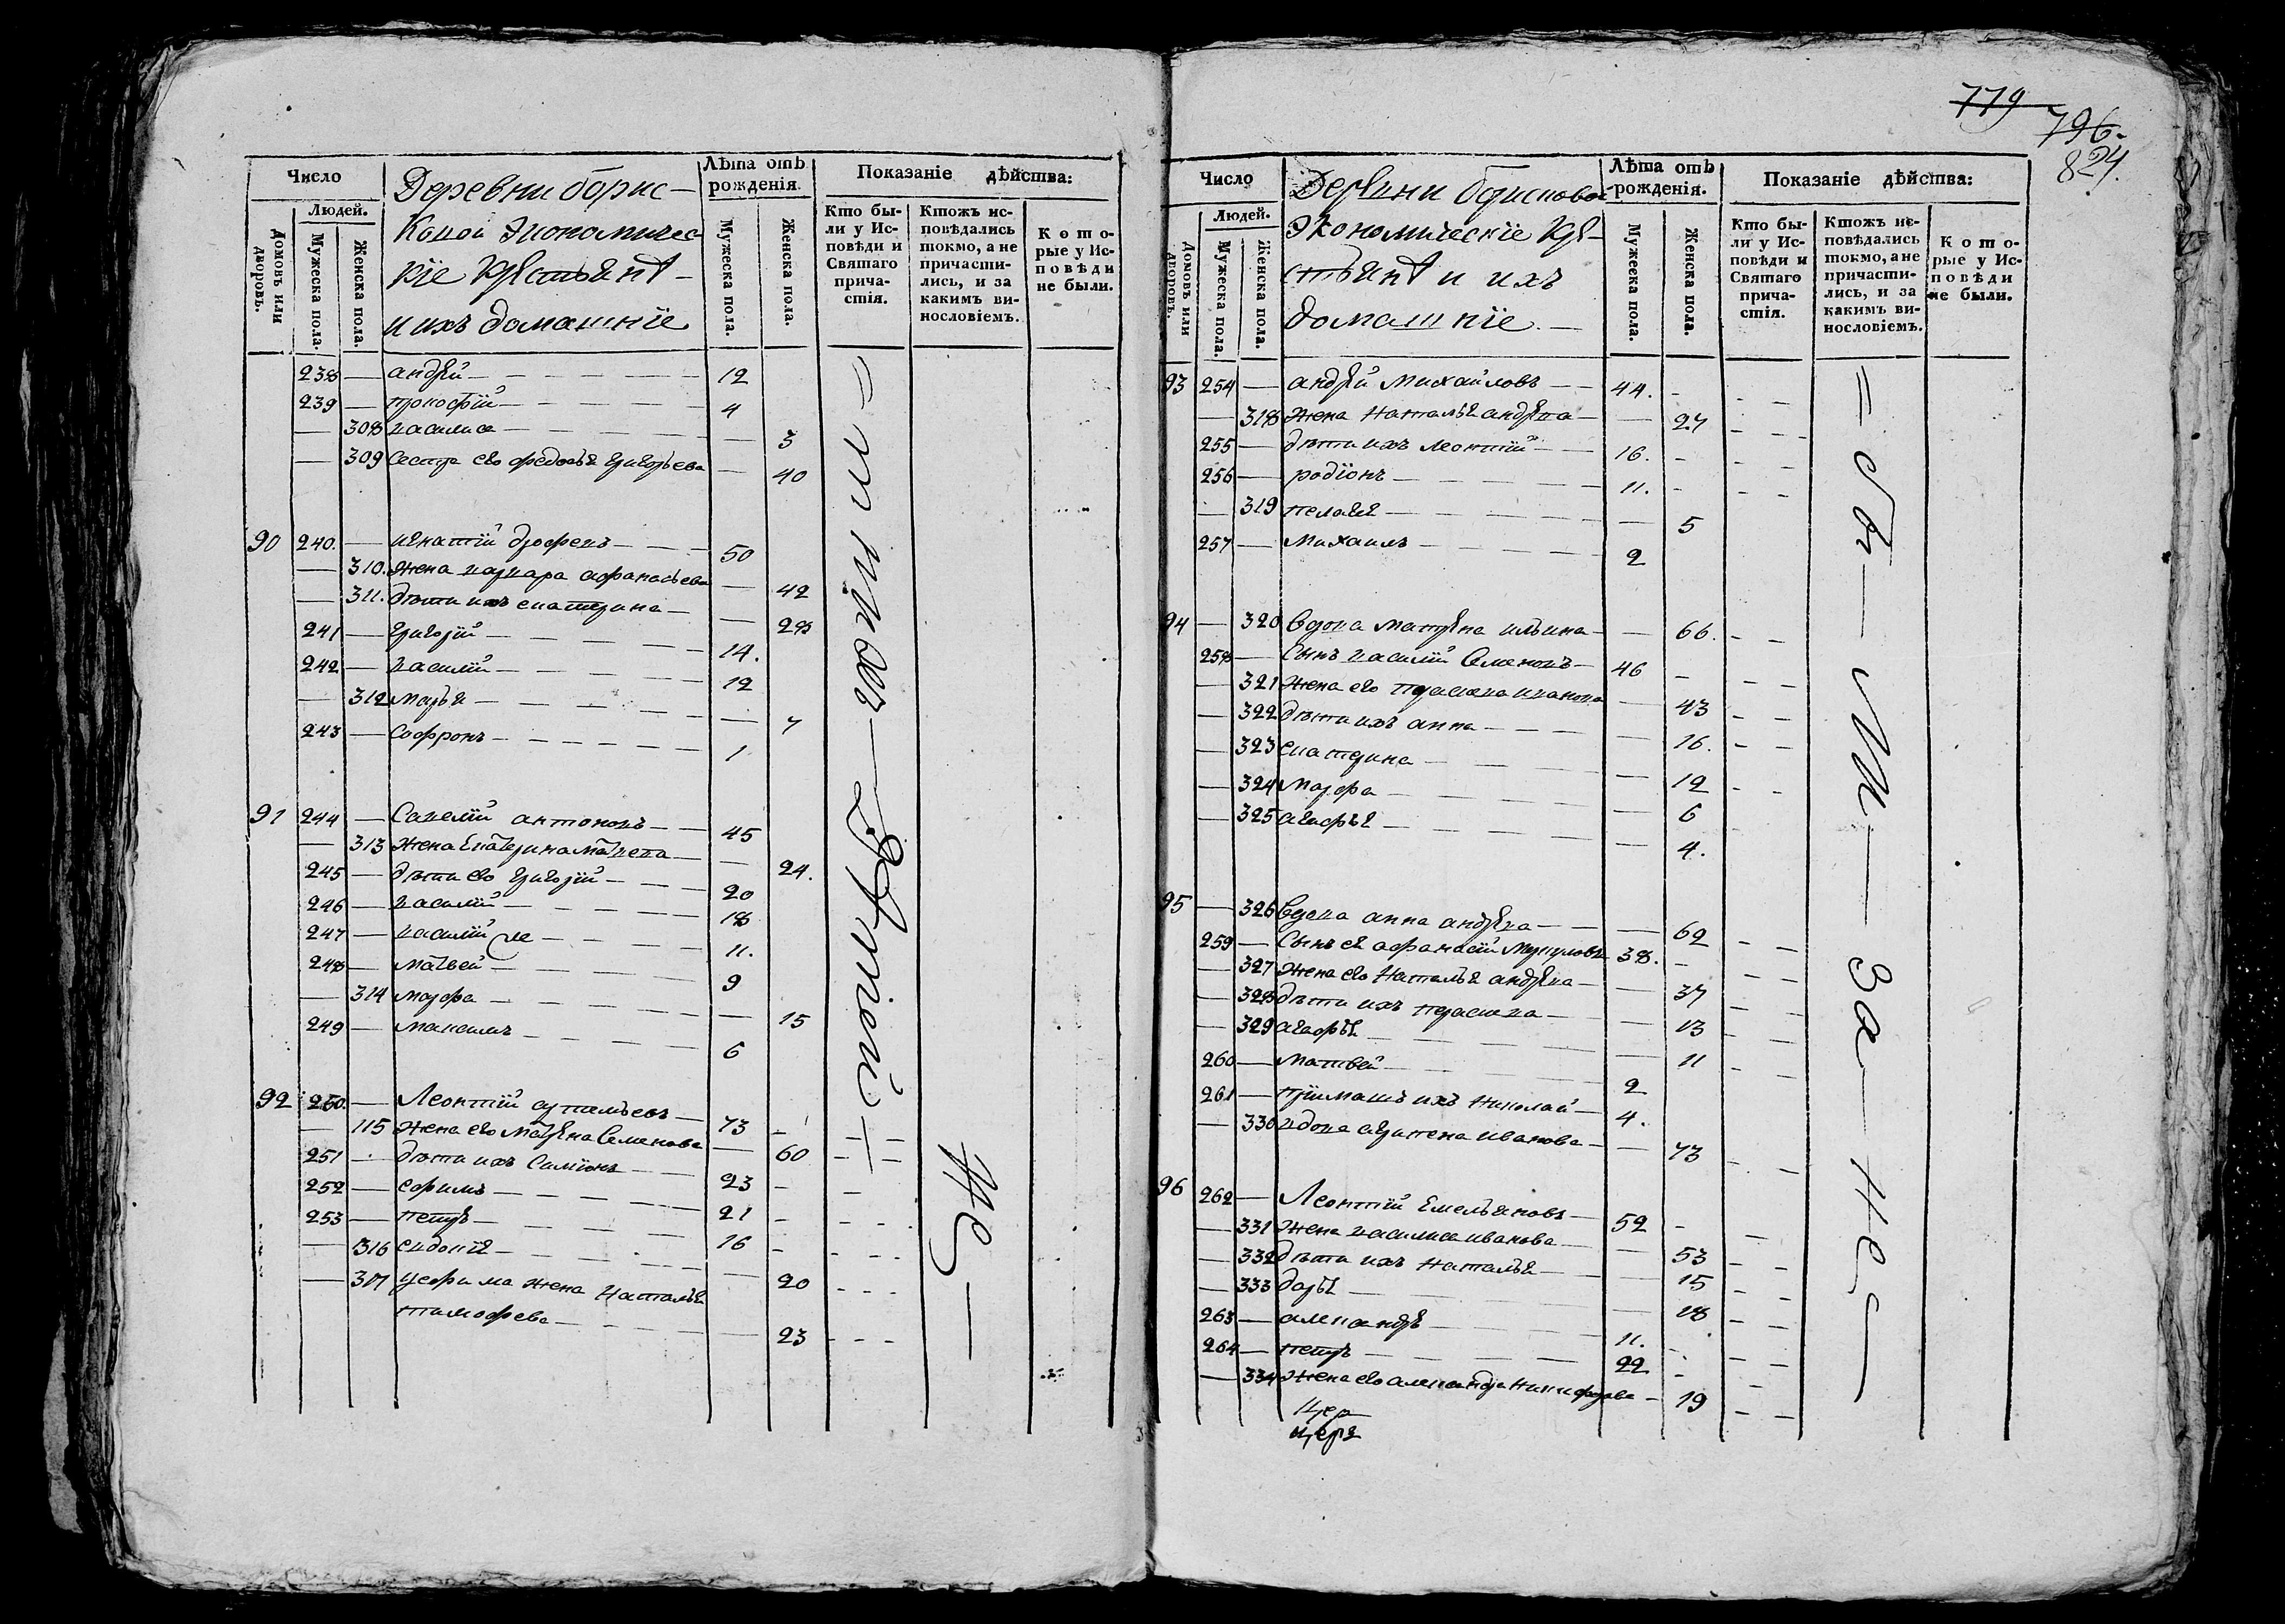 779
796.
824.
Число
Людей.
Домовъ или дворовъ.
Мужеска пола.
Женска пола.
Деревни борис-
ковой Экономичес
кїе крестьянѣ -
и ихъ домашнїе
Лѣта отъ рожденія.
Мужеска пола.
Женска пола.
Показаніе дѣйства:
Кто бы-
ли у Ис-
повѣди и
Святаго
прича-
стія.
Ктожъ ис-
повѣдались
токмо, а не
причасти-
лись, и за
какимъ ви-
нословіемъ.
К о т о-
рые у Ис-
п о в ѣ д и
не были.
238 — андрѣй — 12
239 — прокофїй — 4
— 308 василиса — 3
— 309 Сестра его федосья григорьева — 40
90 240. — игнатїй 50
— 310. жена варвара афанасьева — 42
— 311. дѣти ихъ екатерина — 28
241 — григорїй — 14.
242 — василїй — 12
— 312 марья — 7
243 — Софронъ — 1
91 244 — Савелїй антоновъ — 45
— 313 жена Екатерина матвева — 24.
245 — дѣти его григорїй — 20
246 — василїй — 18
247 — василїй же — 11.
248 — матвей — 9
— 314 марфа — 15
249 — максимъ — 6
92 250. — Леонтїй артемьевъ — 73
— 115 жена его матрена Семенова — 60
251 — дѣти ихъ Симїонъ — 23
252 — ефимъ — 21
253 — петръ — 16
— 316 евдокїя — 20
— 317 уефима жена Наталья
тимофева — 23
Число
Людей.
Домовъ или дворовъ.
Мужеска пола.
Женска пола.
Деревни борисковой
Экономическїе кре-
стьянѣ и ихъ
домашнїе. —
Лѣта отъ рожденія.
Мужеска пола.
Женска пола.
Показаніе дѣйства:
Кто бы-
ли у Ис-
повѣди и
Святаго
прича-
стія.
Ктожъ ис-
повѣдались
токмо, а не
причасти-
лись, и за
какимъ ви-
нословіемъ.
К о т о-
рые у Ис-
п о в ѣ д и
не были.
93 254 — андрѣй михаиловъ — 44.
— 318 жена наталья андрѣева — 27
255 — дѣти ихъ леонтїй — 16.
256 — родїонъ — 11.
— 319 пелагея — 5
257 — михаилъ — 2
94 — 320 вдова матрена ильина — 66.
258 — Сынъ василїй Семеновъ — 46
— 321 жена его прасковья иванова — 43
— 322 дѣти ихъ анна — 16.
— 323 екатерина — 12
— 324 марфа — 6
— 325 агафья — 4.
95 — 326 вдова анна андрѣева — 62
259 — Сынъ ея афанасїй 38.
— 327 жена его наталья андрѣева — 37
— 328 дѣти ихъ прасковья — 13
— 329 агафья — 11
260 — матвей — 2
261 — прїимашъ ихъ николай — 4.
— 330 вдова агрипена иванова — 73
96 262 — Леонтїй Емельяновъ — 52
— 331 жена василиса иванова — 53
— 332 дѣти ихъ наталья — 15
— 333 дарья — 18
263 — александръ — 11.
264 — петръ — 22
— 334 жена его александра никифорова — 19